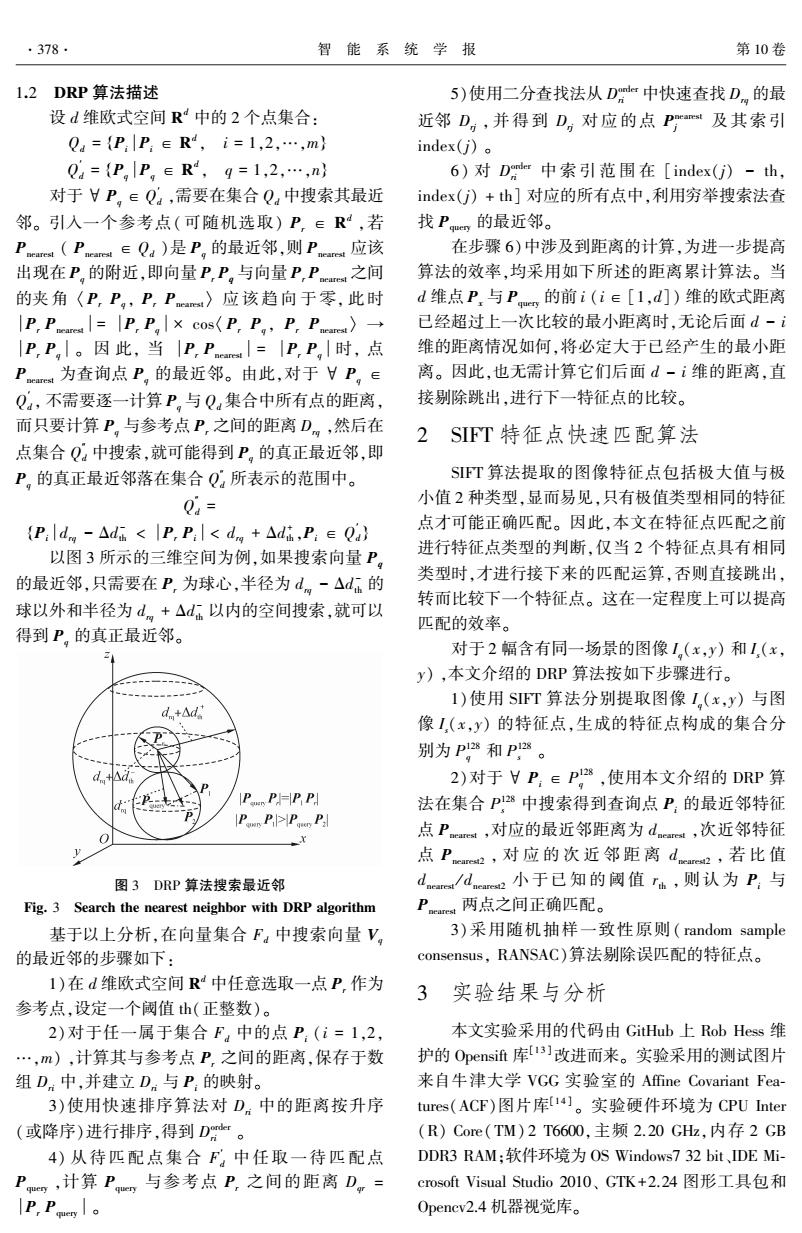 ·378·
智 能 系 统 学 报
第10卷
1.2 DRP 算法描述
设 d 维欧式空间 R^d 中的 2 个点集合:
Q_d = {P_i|P_i ∈ R^d, i = 1,2,⋯,m}
Q'_d = {P_q|P_q ∈ R^d, q = 1,2,⋯,n}
对于 ∀ P_q ∈ Q'_d ,需要在集合 Q_d 中搜索其最近
邻。引入一个参考点(可随机选取) P_r ∈ R^d ,若
P_nearest ( P_nearest ∈ Q_d )是 P_q 的最近邻,则 P_nearest 应该
出现在 P_q 的附近,即向量 P_r P_q 与向量 P_r P_nearest 之间
的夹角〈P_r P_q, P_r P_nearest〉应该趋向于零, 此时
|P_r P_nearest| = |P_r P_q| × cos〈P_r P_q, P_r P_nearest〉→
|P_r P_q|。因此, 当 |P_r P_nearest| = |P_r P_q| 时, 点
P_nearest 为查询点 P_q 的最近邻。由此,对于 ∀ P_q ∈
Q'_d, 不需要逐一计算 P_q 与 Q_d 集合中所有点的距离,
而只要计算 P_q 与参考点 P_r 之间的距离 D_rq ,然后在
点集合 Q''_d 中搜索,就可能得到 P_q 的真正最近邻,即
P_q 的真正最近邻落在集合 Q''_d 所表示的范围中。
Q''_d =
{P_i|d_rq − Δd_th^- < |P_r P_i| < d_rq + Δd_th^+,P_i ∈ Q'_d}
以图 3 所示的三维空间为例,如果搜索向量 P_q
的最近邻,只需要在 P_r 为球心,半径为 d_rq − Δd_th^- 的
球以外和半径为 d_rq + Δd_th^- 以内的空间搜索,就可以
得到 P_q 的真正最近邻。
z
d_rq+Δd_th^+
P_r
d_rq+Δd_th^-
P_1
d_rq
P_query
P_2
|P_query P_r|=|P_1 P_r|
|P_query P_1|>|P_query P_2|
O
x
y
图 3 DRP 算法搜索最近邻
Fig. 3 Search the nearest neighbor with DRP algorithm
基于以上分析,在向量集合 F_d 中搜索向量 V_q
的最近邻的步骤如下:
1)在 d 维欧式空间 R^d 中任意选取一点 P_r 作为
参考点,设定一个阈值 th(正整数)。
2)对于任一属于集合 F_d 中的点 P_i (i = 1,2,
⋯,m) ,计算其与参考点 P_r 之间的距离,保存于数
组 D_ri 中,并建立 D_ri 与 P_i 的映射。
3)使用快速排序算法对 D_ri 中的距离按升序
(或降序)进行排序,得到 D_ri^order 。
4) 从待匹配点集合 F'_d 中任取一待匹配点
P_query ,计算 P_query 与参考点 P_r 之间的距离 D_qr =
|P_r P_query| 。
5)使用二分查找法从 D_ri^order 中快速查找 D_rq 的最
近邻 D_rj , 并得到 D_rj 对应的点 P_j^nearest 及其索引
index(j) 。
6) 对 D_ri^order 中索引范围在 [index(j) − th,
index(j) + th] 对应的所有点中,利用穷举搜索法查
找 P_query 的最近邻。
在步骤 6)中涉及到距离的计算,为进一步提高
算法的效率,均采用如下所述的距离累计算法。当
d 维点 P_x 与 P_query 的前 i (i ∈ [1,d]) 维的欧式距离
已经超过上一次比较的最小距离时,无论后面 d − i
维的距离情况如何,将必定大于已经产生的最小距
离。因此,也无需计算它们后面 d − i 维的距离,直
接剔除跳出,进行下一特征点的比较。
2 SIFT 特征点快速匹配算法
SIFT 算法提取的图像特征点包括极大值与极
小值 2 种类型,显而易见,只有极值类型相同的特征
点才可能正确匹配。因此,本文在特征点匹配之前
进行特征点类型的判断,仅当 2 个特征点具有相同
类型时,才进行接下来的匹配运算,否则直接跳出,
转而比较下一个特征点。这在一定程度上可以提高
匹配的效率。
对于 2 幅含有同一场景的图像 I_q(x,y) 和 I_s(x,
y) ,本文介绍的 DRP 算法按如下步骤进行。
1)使用 SIFT 算法分别提取图像 I_q(x,y) 与图
像 I_s(x,y) 的特征点,生成的特征点构成的集合分
别为 P_q^128 和 P_s^128 。
2)对于 ∀ P_i ∈ P_q^128 ,使用本文介绍的 DRP 算
法在集合 P_s^128 中搜索得到查询点 P_i 的最近邻特征
点 P_nearest ,对应的最近邻距离为 d_nearest ,次近邻特征
点 P_nearest2 , 对应的次近邻距离 d_nearest2 , 若比值
d_nearest/d_nearest2 小于已知的阈值 r_th , 则认为 P_i 与
P_nearest 两点之间正确匹配。
3)采用随机抽样一致性原则(random sample
consensus, RANSAC)算法剔除误匹配的特征点。
3 实验结果与分析
本文实验采用的代码由 GitHub 上 Rob Hess 维
护的 Opensift 库[13]改进而来。实验采用的测试图片
来自牛津大学 VGG 实验室的 Affine Covariant Fea-
tures(ACF)图片库[14]。实验硬件环境为 CPU Inter
(R) Core(TM)2 T6600,主频 2.20 GHz,内存 2 GB
DDR3 RAM;软件环境为 OS Windows7 32 bit、IDE Mi-
crosoft Visual Studio 2010、GTK+2.24 图形工具包和
Opencv2.4 机器视觉库。